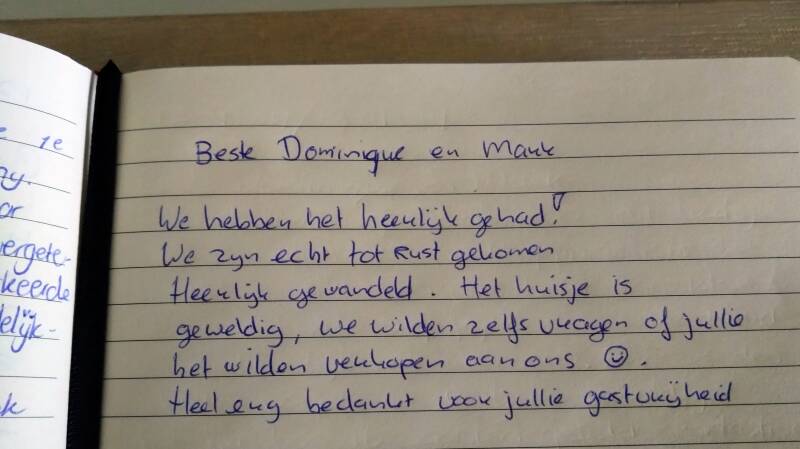 e 1e
or
vergete-
keerde
delijk-
k
Beste Dominique en Mark
We hebben het heerlijk gehad!
We zijn echt tot Rust gekomen
Heerlijk gewandeld. Het huisje is
geweldig, we wilden zelfs vragen of jullie
het wilden verkopen aan ons ☺.
Heel erg bedankt voor jullie gastvrijheid